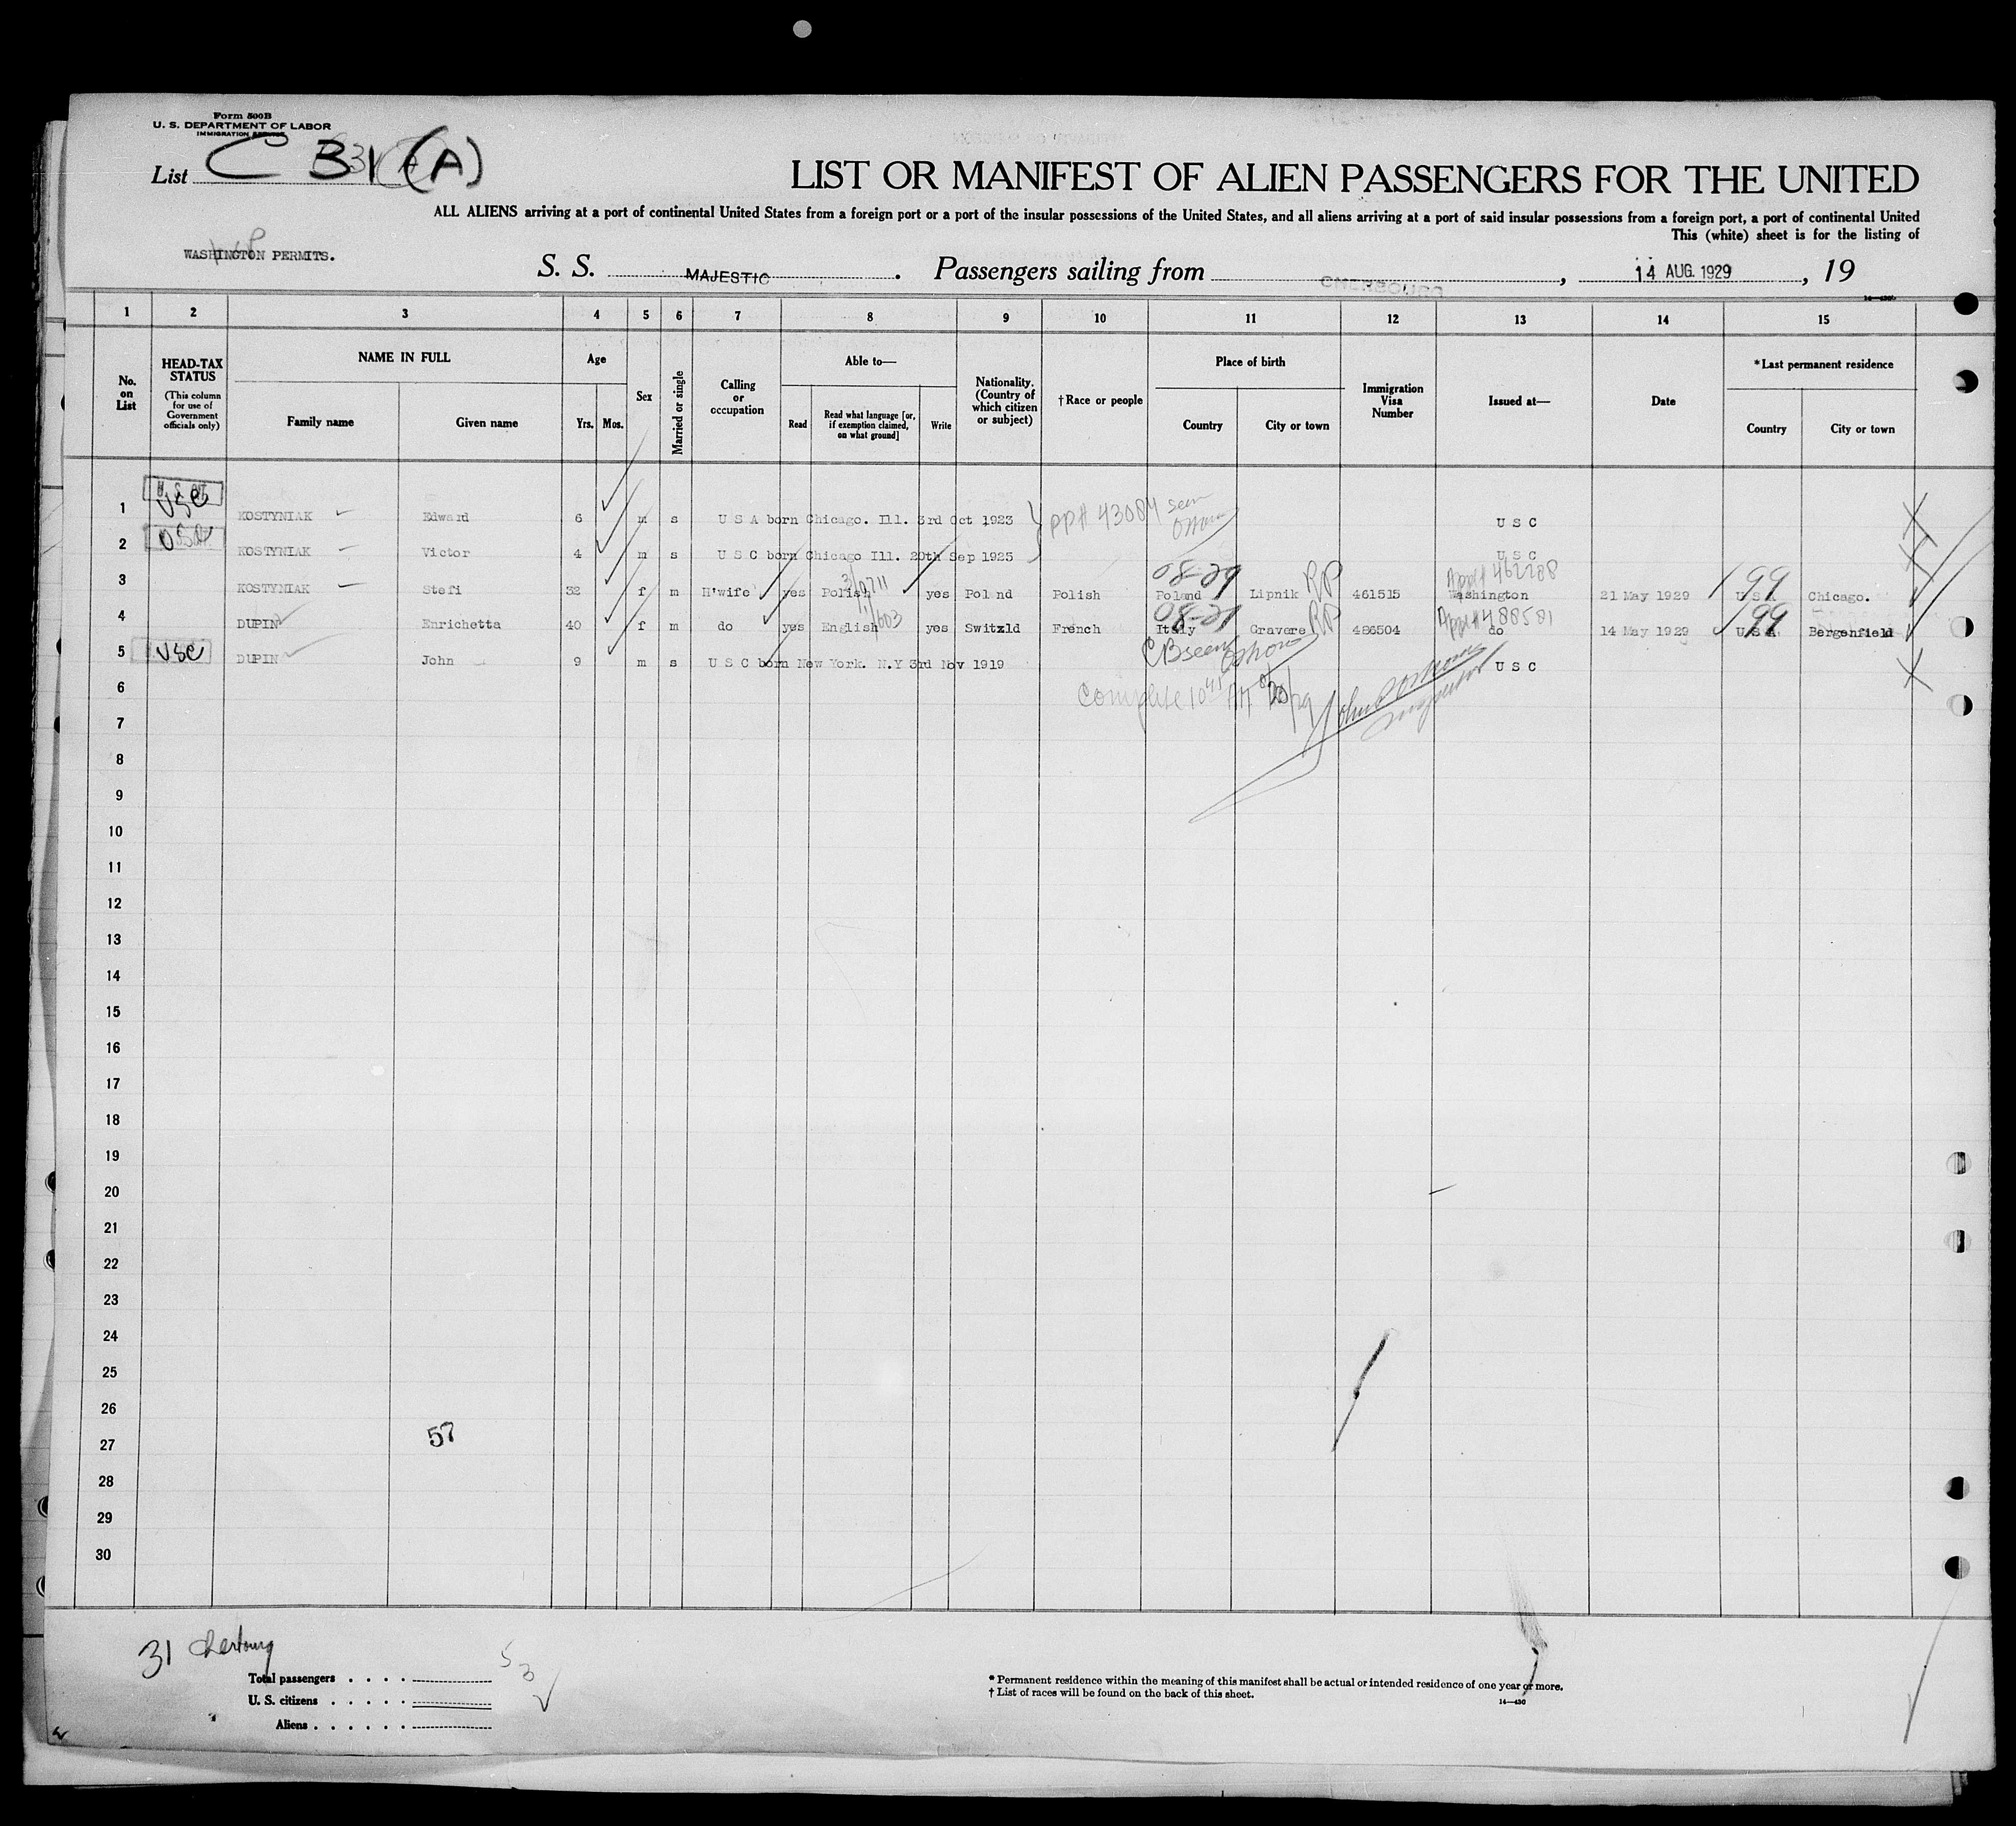 Form 500B
U. S. DEPARTMENT OF LABOR
IMMIGRATION SERVICE
List C 31 (A)
LIST OR MANIFEST OF ALIEN PASSENGERS FOR THE UNITED
ALL ALIENS arriving at a port of continental United States from a foreign port or a port of the insular possessions of the United States, and all aliens arriving at a port of said insular possessions from a foreign port, a port of continental United
This (white) sheet is for the listing of
WASHINGTON PERMITS.
S. S. MAJESTIC . Passengers sailing from CHERBOURG , 14 AUG. 1929 , 19
14—430
1 2 3 4 5 6 7 8 9 10 11 12 13 14 15
No. on List
HEAD-TAX STATUS
(This column for use of Government officials only)
NAME IN FULL
Family name
Given name
Age
Yrs. Mos.
Sex
Married or single
Calling or occupation
Able to—
Read
Read what language [or, if exemption claimed, on what ground]
Write
Nationality. (Country of which citizen or subject)
† Race or people
Place of birth
Country
City or town
Immigration Visa Number
Issued at—
Date
*Last permanent residence
Country
City or town
1 USC KOSTYNIAK Edward 6 m s U S A born Chicago. Ill. 3rd Oct 1923 PP# 43084 seen U S C
2 USC KOSTYNIAK Victor 4 m s U S C born Chicago Ill. 20th Sep 1925 U S C
08-29 Appl# 462288 99
3 KOSTYNIAK Stefi 32 f m H'wife yes Polish yes Poland Polish Poland Lipnik RP 461515 Washington 21 May 1929 U S A Chicago.
08-29 Appl# 488581 99
4 DUPIN Enrichetta 40 f m do yes English yes Switzld French Italy Gravere RP 486504 do 14 May 1929 U S A Bergenfield
CB seen
5 USC DUPIN John 9 m s U S C born New York. N.Y 3rd Nov 1919 U S C
6 Complete 10 41 AM 8/20/29
Inspector
7
8
9
10
11
12
13
14
15
16
17
18
19
20
21
22
23
24
25
26
27 57
28
29
30
31 Cherbourg
Total passengers . . . . 5
U. S. citizens . . . . . 3
Aliens . . . . . .
* Permanent residence within the meaning of this manifest shall be actual or intended residence of one year or more.
† List of races will be found on the back of this sheet.
14—430